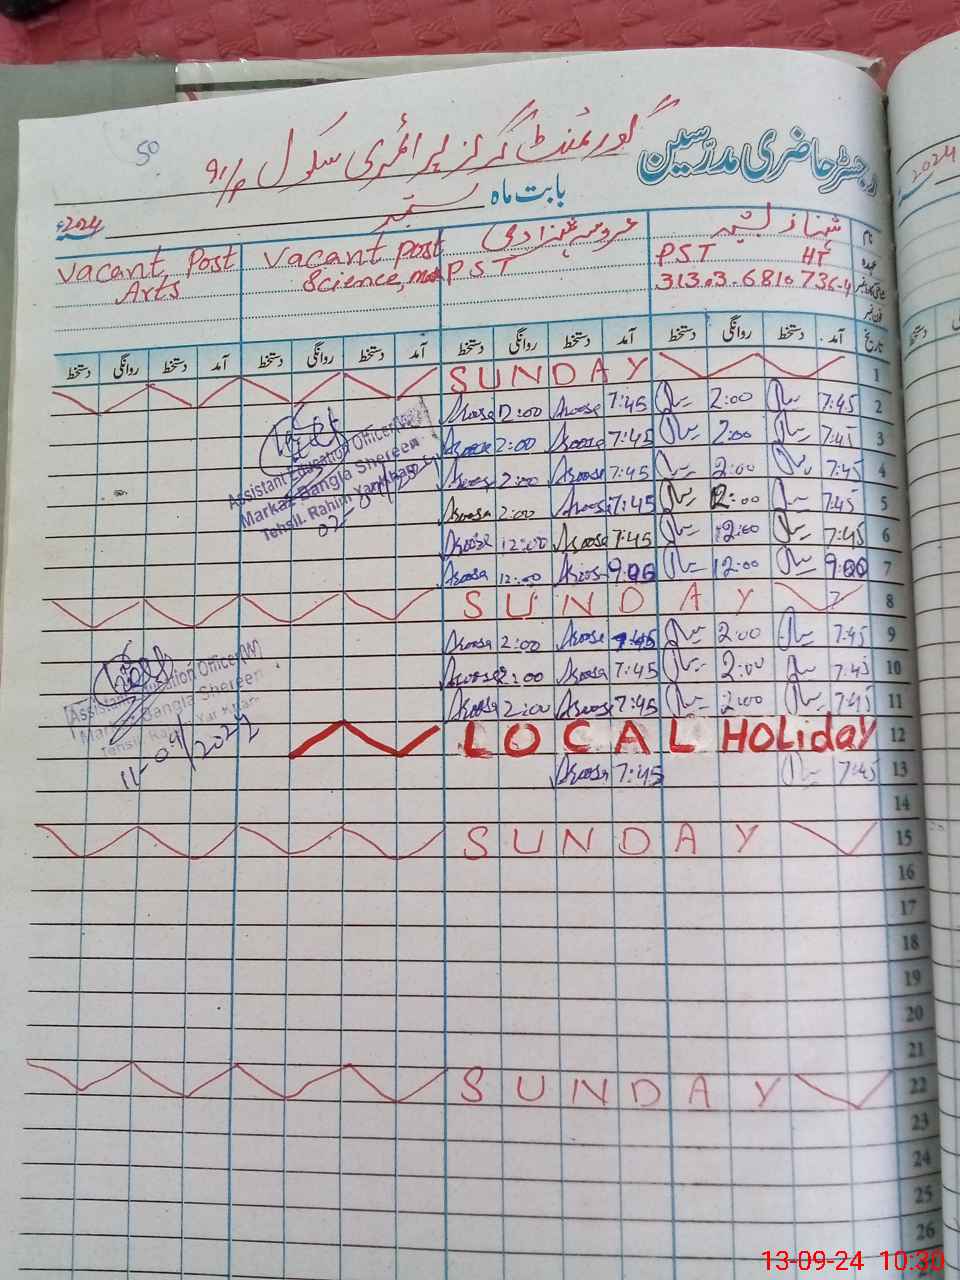 50
گورنمنٹ گرلز پرائمری سکول
رجسٹر حاضری مدرسین
بابت ماہ ستمبر 2024ء
2024
نام شہناز
Vacant Post Arts
Vacant Post Science,
PST
عہدہ HT PST
313.03.6810736-4
تاریخ آمد دستخط روانگی دستخط آمد دستخط روانگی دستخط آمد دستخط روانگی دستخط آمد دستخط روانگی دستخط
1 SUNDAY
2 7:45 2:00 7:45 Aroosa 12:00 Aroosa
3 7:45 2:00 7:45 Aroosa 2:00 Aroosa
4 7:45 2:00 7:45 Aroosa 2:00 Aroosa
5 7:45 12:00 7:45 Aroosa 2:00 Aroosa
6 7:45 12:00 7:45 Aroosa 12:00 Aroosa
7 9:00 12:00 9:00 Aroosa 12:00 Aroosa
Assistant Education Officer (W)
Markaz Bangla Shereen
Tehsil Rahim Yar Khan
8 SUNDAY
9 7:45 2:00 7:45 Aroosa 2:00 Aroosa
10 7:45 2:00 7:45 Aroosa 2:00 Aroosa
11 7:45 2:00 7:45 Aroosa 2:00 Aroosa
Assistant Education Officer (W)
Markaz Bangla Shereen
Tehsil Rahim Yar Khan
12 LOCAL Holiday
13 7:45 7:45 Aroosa
14
15 SUNDAY
16
17
18
19
20
21
22 SUNDAY
23
24
25
26
13-09-24 10:30